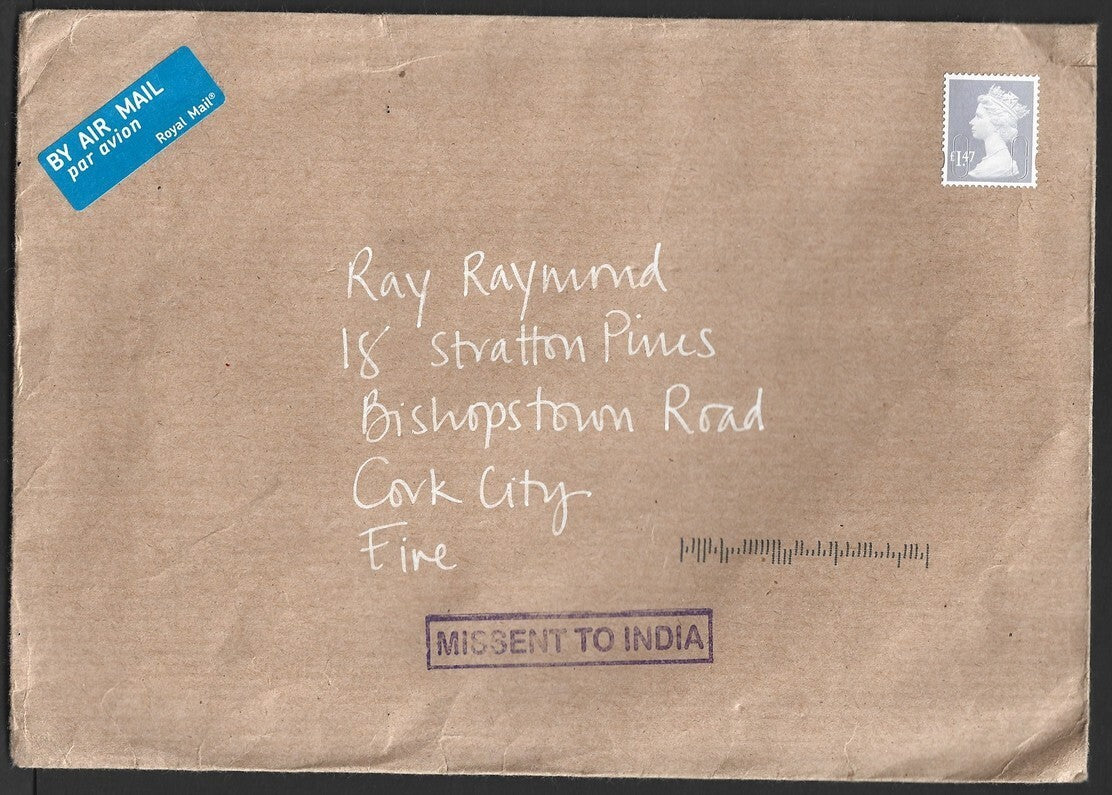 BY AIR MAIL
par avion
Royal Mail®
£1.47
Ray Raymond
18 Stratton Pines
Bishopstown Road
Cork City
Eire
MISSENT TO INDIA